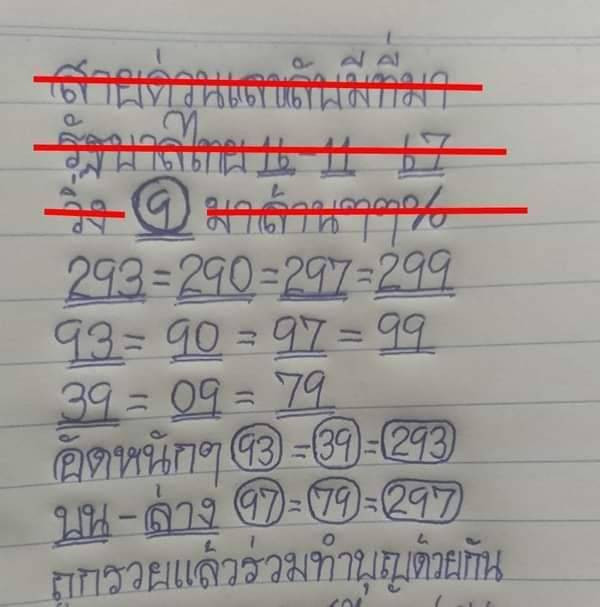 สายด่วนเลขลับมีที่มา
รัฐบาลไทย 16-11 67
วิ่ง 9 มาล้านๆๆ%
293=290=297=299
93=90=97=99
39=09=79
อัดหนักๆ 93=39=293
บน-ล่าง 97=79=297
ถูกรวยแล้วร่วมทำบุญด้วยกัน